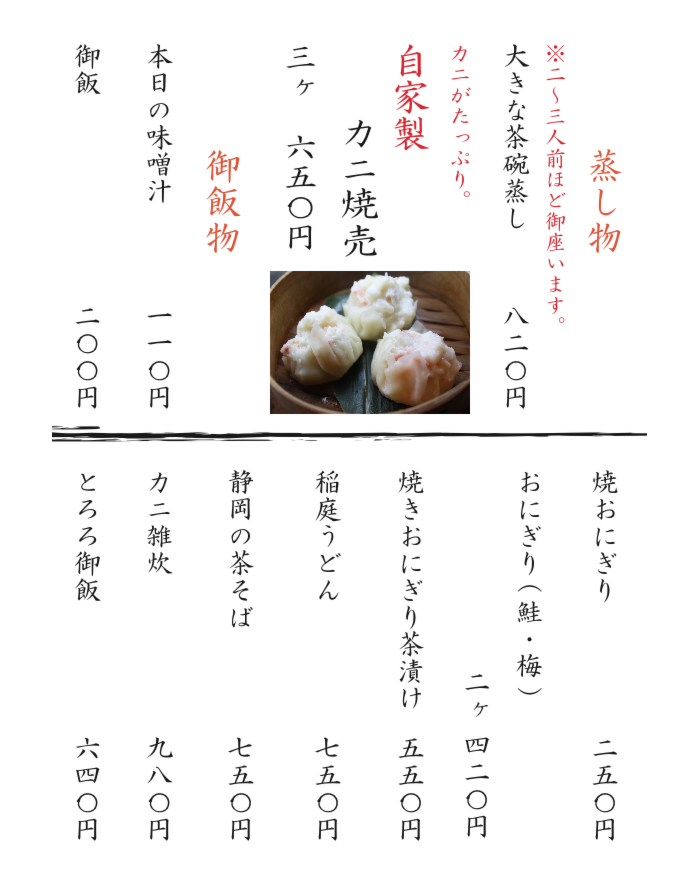 蒸し物
※二～三人前ほど御座います。
大きな茶碗蒸し 八二〇円
カニがたっぷり。
自家製
カニ焼売
三ヶ 六五〇円
御飯物
本日の味噌汁 一一〇円
御飯 二〇〇円
焼おにぎり 二五〇円
おにぎり（鮭・梅）
二ヶ 四二〇円
焼きおにぎり茶漬け 五五〇円
稲庭うどん 七五〇円
静岡の茶そば 七五〇円
カニ雑炊 九八〇円
とろろ御飯 六四〇円